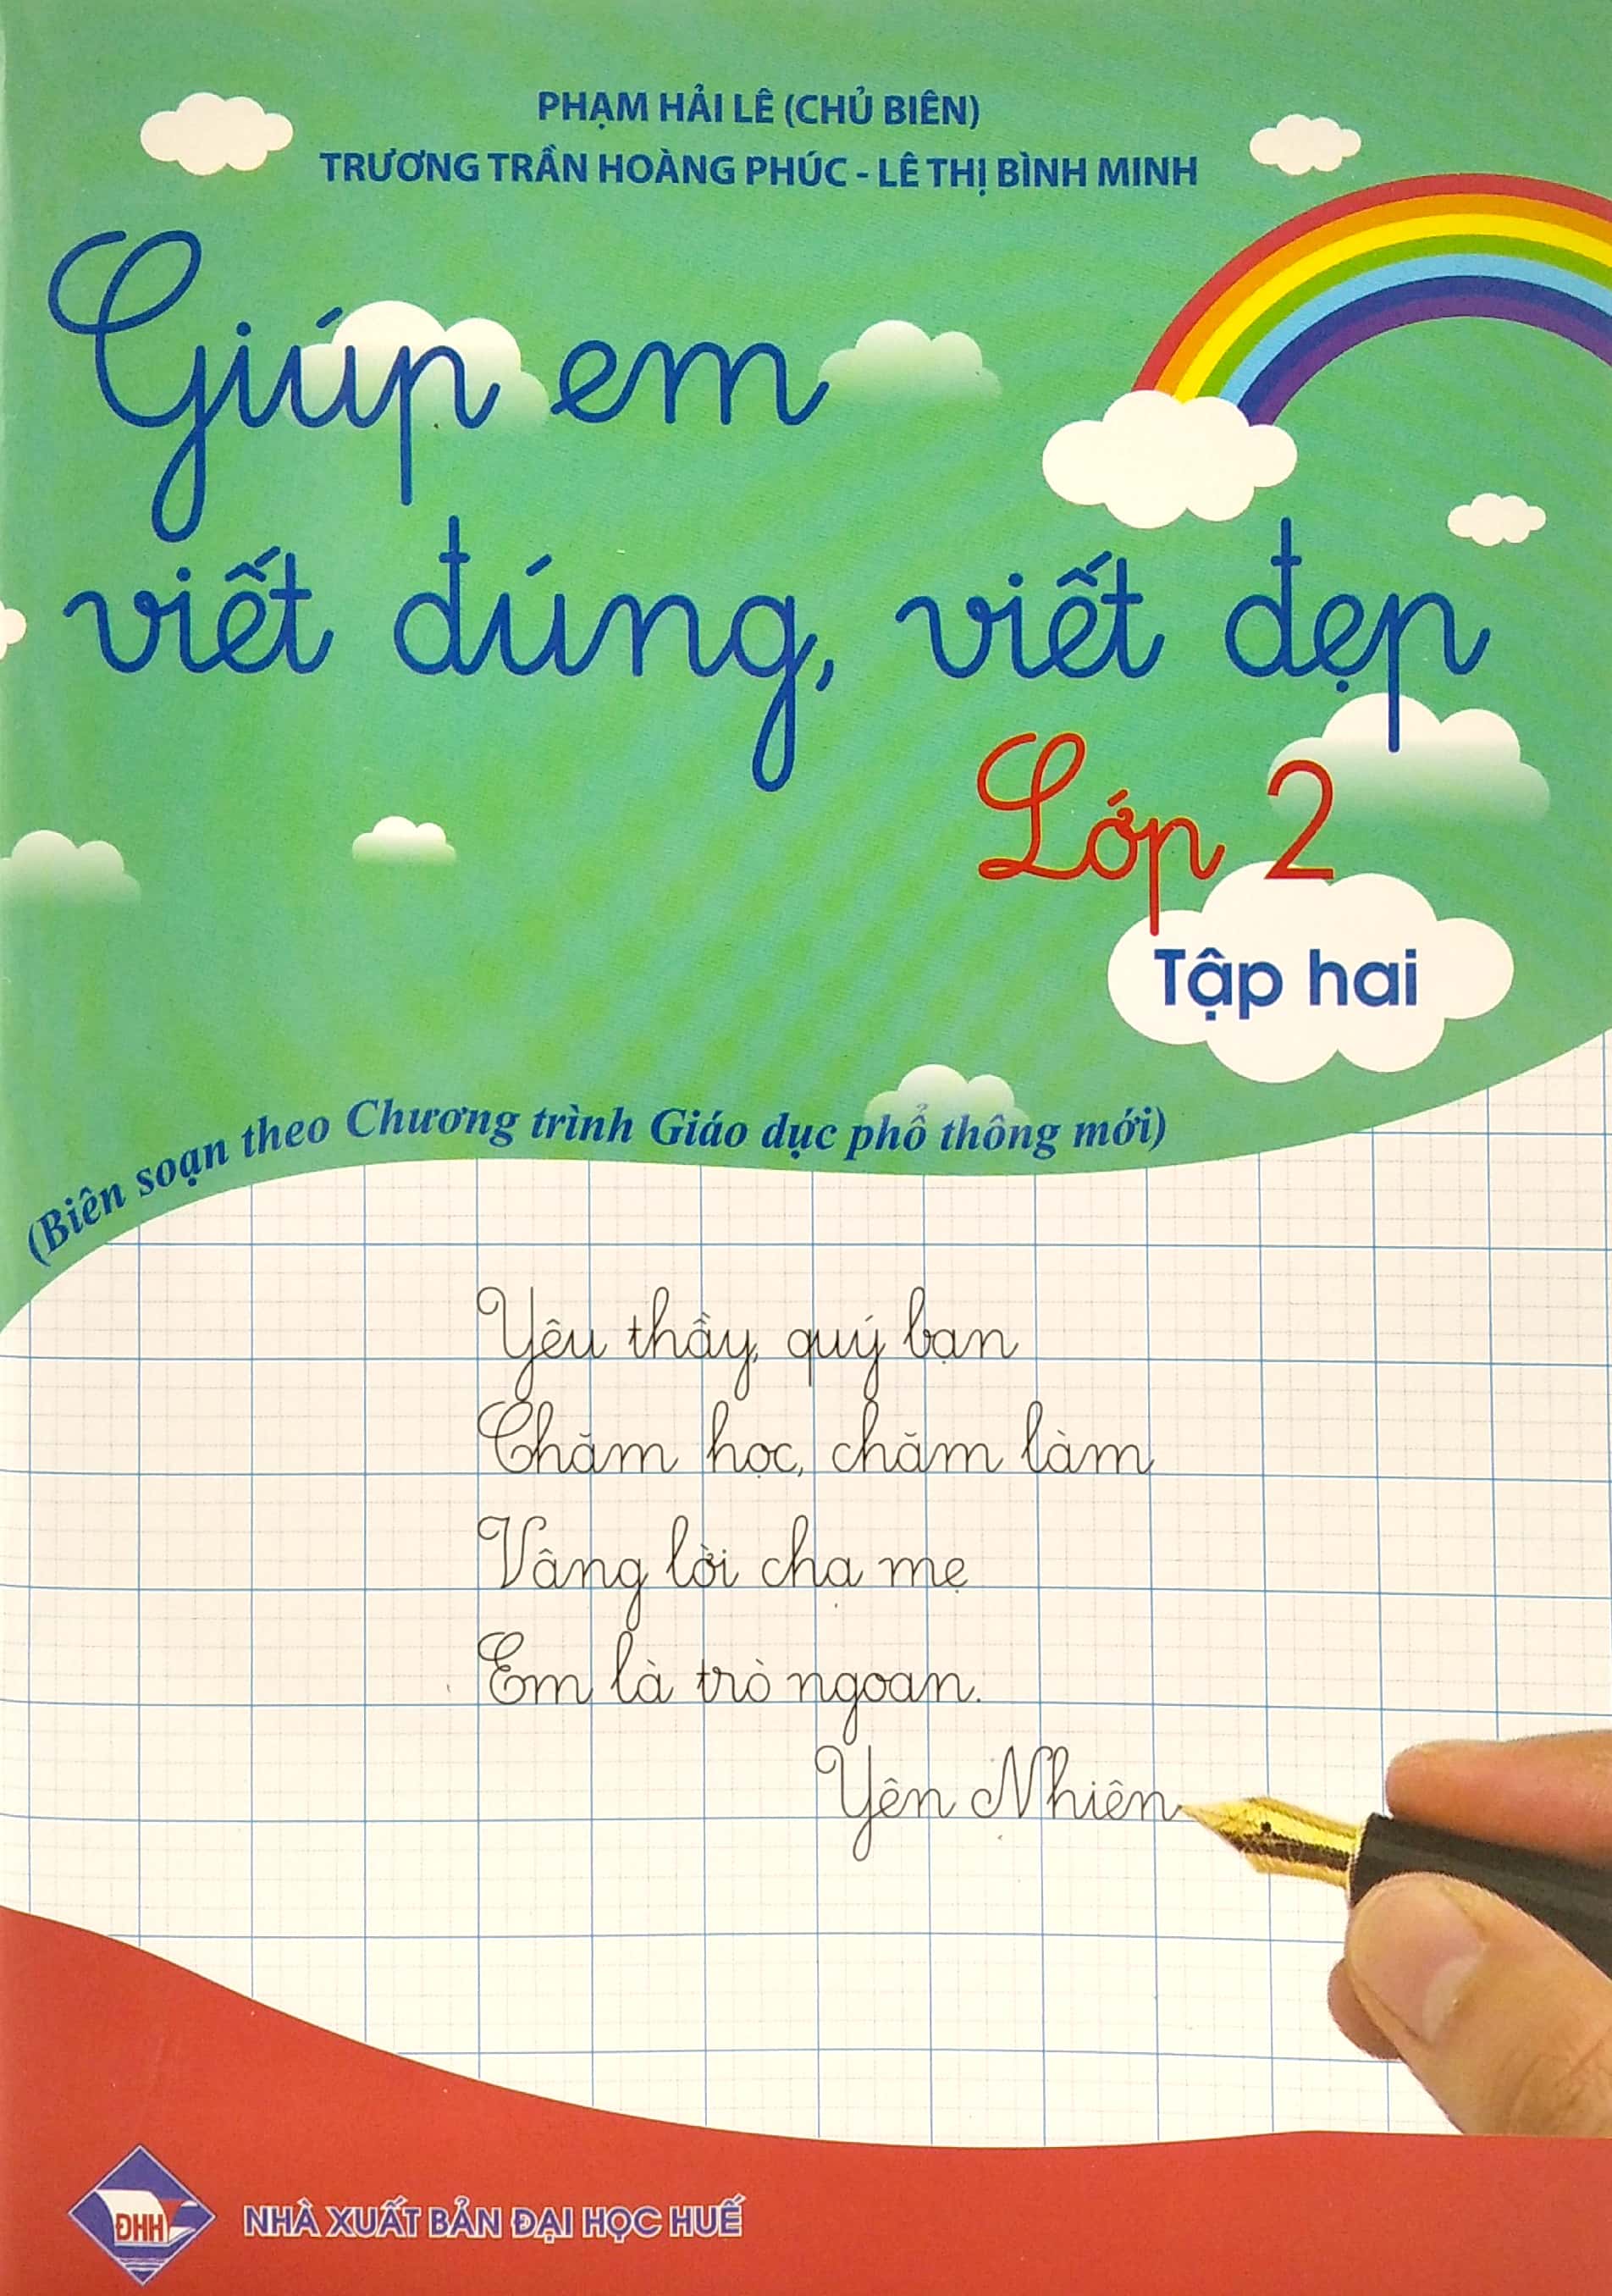 PHẠM HẢI LÊ (CHỦ BIÊN)
TRƯƠNG TRẦN HOÀNG PHÚC - LÊ THỊ BÌNH MINH
Giúp em
viết đúng, viết đẹp
Lớp 2
Tập hai
(Biên soạn theo Chương trình Giáo dục phổ thông mới)
Yêu thầy, quý bạn
Chăm học, chăm làm
Vâng lời cha mẹ
Em là trò ngoan.
Yên Nhiên
ĐHH
NHÀ XUẤT BẢN ĐẠI HỌC HUẾ